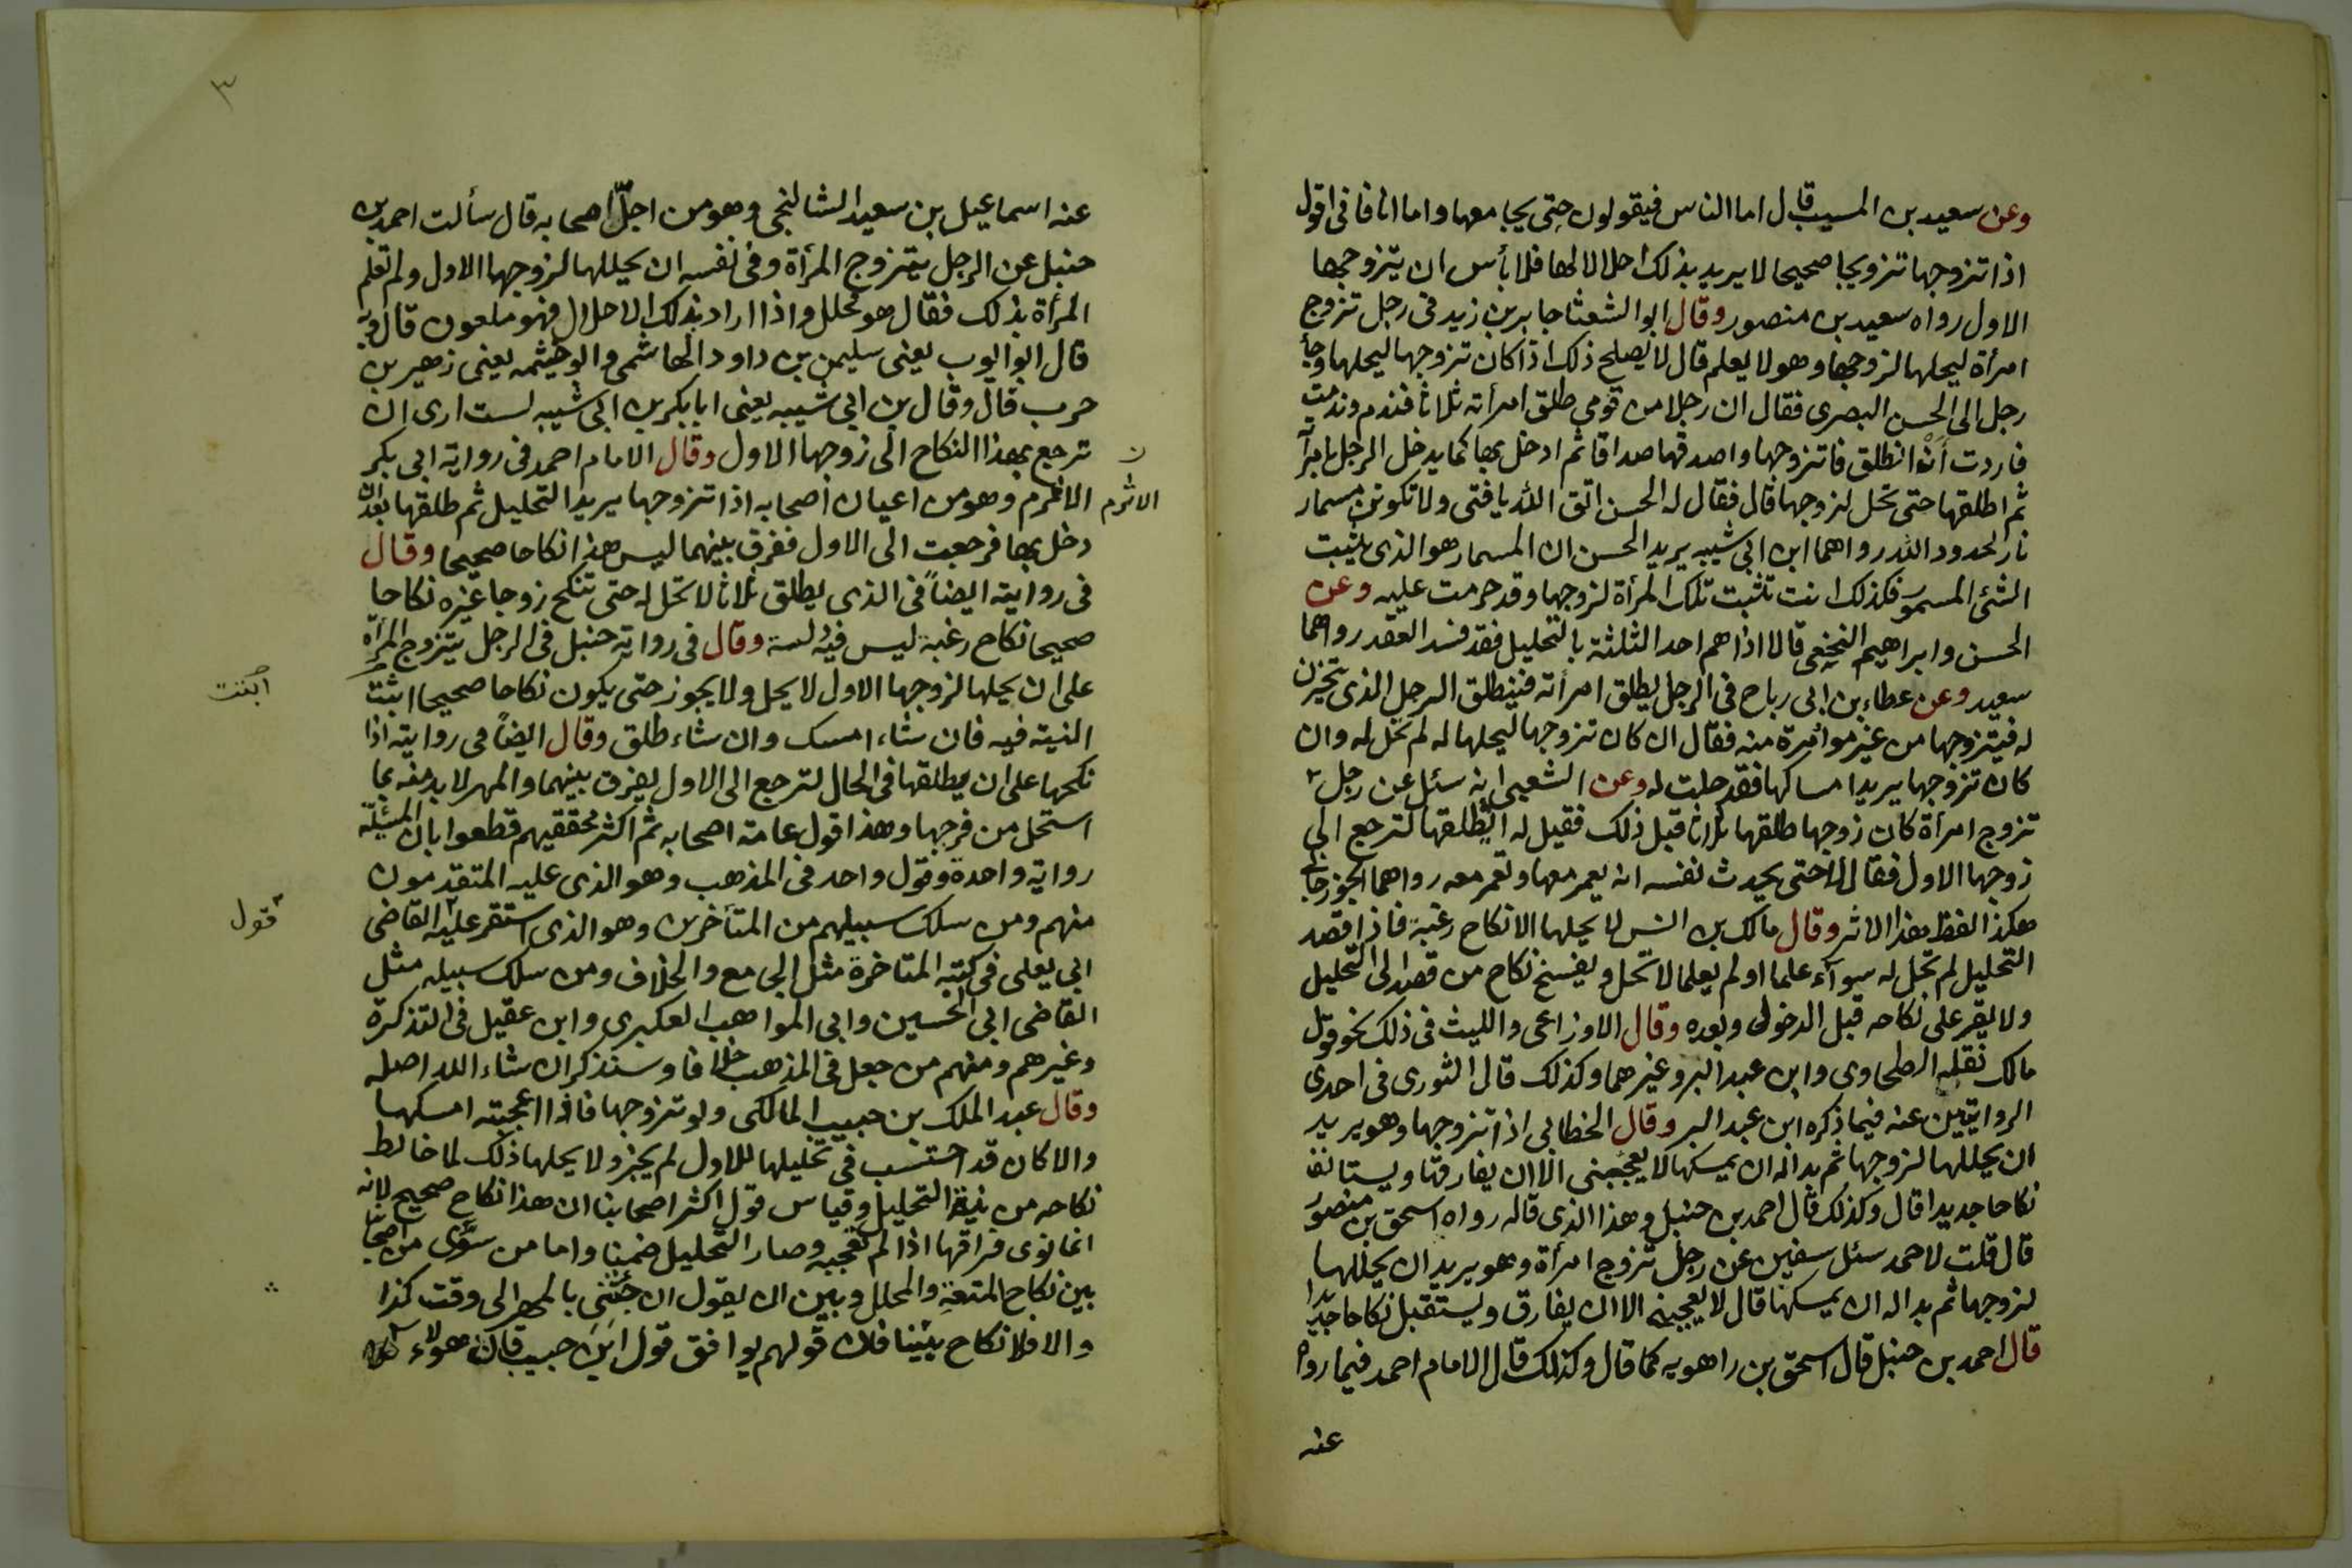 وعن سعيد بن المسيب قال اما الناس فيقولون حتى يجامعها واما انا فانى اقول
اذا تزوجها تزويجا صحيحا لا يريد بذلك احلالا لها فلا بأس ان يتزوجها
الاول رواه سعيد بن منصور وقال ابو الشعثا جابر بن زيد فى رجل تزوج
امرأة ليحلها لزوجها وهو لا يعلم قال لا يصلح ذلك اذا كان تزوجها ليحلها وجأ
رجل الى الحسن البصرى فقال ان رجلا من قومى طلق امرأته ثلاثا فندم وندمت
فاردت أن انطلق فاتزوجها واصدقها صداقا ثم ادخل بها كما يدخل الرجل بامرأته
ثم اطلقها حتى تحل لزوجها قال فقال له الحسن اتق الله يا فتى ولا تكونن مسمار
نار لحدود الله رواهما ابن ابى شيبه يريد الحسن ان المسمار هو الذى يثبت
الشئ المسمور فكذلك انت تثبت تلك المرأة لزوجها وقد حرمت عليه وعن
الحسن وابراهيم النخعى قالا اذا هم احد الثلثة بالتحليل فقد فسد العقد رواهما
سعيد وعن عطاء بن ابى رباح فى الرجل يطلق امرأته فينطلق الرجل الذى يتحزن
له فيتزوجها من غير موامرة منه فقال ان كان تزوجها ليحلها له لم تحل له وان
كان تزوجها يريد امساكها فقد حلت له وعن الشعبى انه سئل عن رجل
تزوج امرأة كان زوجها طلقها ثلاثا قبل ذلك فقيل له ايطلقها لترجع الى
زوجها الاول فقال لا حتى يحدث نفسه انه يعمر معها وتعمر معه رواهما الجوزجانى
هكذا لفظ هذا الاثر وقال مالك بن انس لا يحلها الا نكاح رغبة فاذا قصد
التحليل لم تحل له سوآء علما او لم يعلما لا تحل ويفسخ نكاح من قصد الى التحليل
ولا يقر على نكاحه قبل الدخول وبعده وقال الاوزاعى والليث فى ذلك نحو قول
مالك نقله الطحاوى وابن عبد البر وغيرهما وكذلك قال الثورى فى احدى
الروايتين عنه فيما ذكره ابن عبد البر وقال الخطابى اذا تزوجها وهو يريد
ان يحللها لزوجها ثم بدا له ان يمسكها لا يعجبنى الا ان يفارقها ويستانف
نكاحا جديدا قال وكذلك قال احمد بن حنبل وهذا الذى قاله رواه اسحق بن منصور
قال قلت لاحمد سئل سفين عن رجل تزوج امرأة وهو يريد ان يحللها
لزوجها ثم بدا له ان يمسكها قال لا يعجبنى الا ان يفارق ويستقبل نكاحا جديدا
قال احمد بن حنبل قال اسحق بن راهويه كما قال وكذلك قال الامام احمد فيما رواه
عنه
٣
عنه اسماعيل بن سعيد الشالنجى وهو من اجلّ اصحابه قال سألت احمد بن
حنبل عن الرجل يتزوج المرأة وفى نفسه ان يحللها لزوجها الاول ولم تعلم
المرأة بذلك فقال هو محلل واذا اراد بذلك الاحلال فهو ملعون قال وبه
قال ابو ايوب يعنى سليمن بن داود الهاشمى وابو خيثمه يعنى زهير بن
حرب قال وقال بن ابى شيبه يعنى ابا بكر بن ابى شيبه لست ارى ان
ترجع بهذا النكاح الى زوجها الاول وقال الامام احمد فى رواية ابى بكر
الاثرم وهو من اعيان اصحابه اذا تزوجها يريد التحليل ثم طلقها بعد ان
ن
الاثرم
دخل بها فرجعت الى الاول ففرق بينهما ليس هذا نكاحا صحيحا وقال
فى روايته ايضاً فى الذى يطلق ثلاثا لا تحل له حتى تنكح زوجا غيره نكاحا
صحيحا نكاح رغبة ليس فيه دلسة وقال فى رواية حنبل فى الرجل يتزوج المرأة
على ان يحلها لزوجها الاول لا يحل ولا يجوز حتى يكون نكاحا صحيحا اثبت
النية فيه فان شاء امسك وان شاء طلق وقال ايضاً فى روايته اذا
نكحها على ان يطلقها فى الحال لترجع الى الاول يفرق بينهما والمهر لا بد منه بما
استحل من فرجها وهذا قول عامة اصحابه ثم اكثر محققيهم قطعوا بان المسئلة
رواية واحدة وقول واحد فى المذهب وهو الذى عليه المتقدمون
منهم ومن سلك سبيلهم من المتأخرين وهو الذى استقر عليه القاضى
قول
ابى يعلى فى كتبه المتاخرة مثل الجامع والخلاف ومن سلك سبيله مثل
القاضى ابى الحسين وابى المواهب العكبرى وابن عقيل فى التذكرة
وغيرهم ومنهم من جعل فى المذهب خلافا وسنذكر ان شاء الله اصله
وقال عبد الملك بن حبيب المالكى ولو تزوجها فاذا اعجبته امسكها
والا كان قد احتسب فى تحليلها للاول لم يجز ولا يحلها ذلك لما خالط
نكاحه من نية التحليل وقياس قول اكثر اصحابنا ان هذا نكاح صحيح لانه
انما نوى فراقها اذا لم تعجبه وصار التحليل ضمنا واما من سوّى من اصحابنا
بين نكاح المتعة والمحلل وبين ان يقول ان جئتنى بالمهر الى وقت كذا
والا فلا نكاح بيننا فان قولهم يوافق قول ابن حبيب فان هولاء